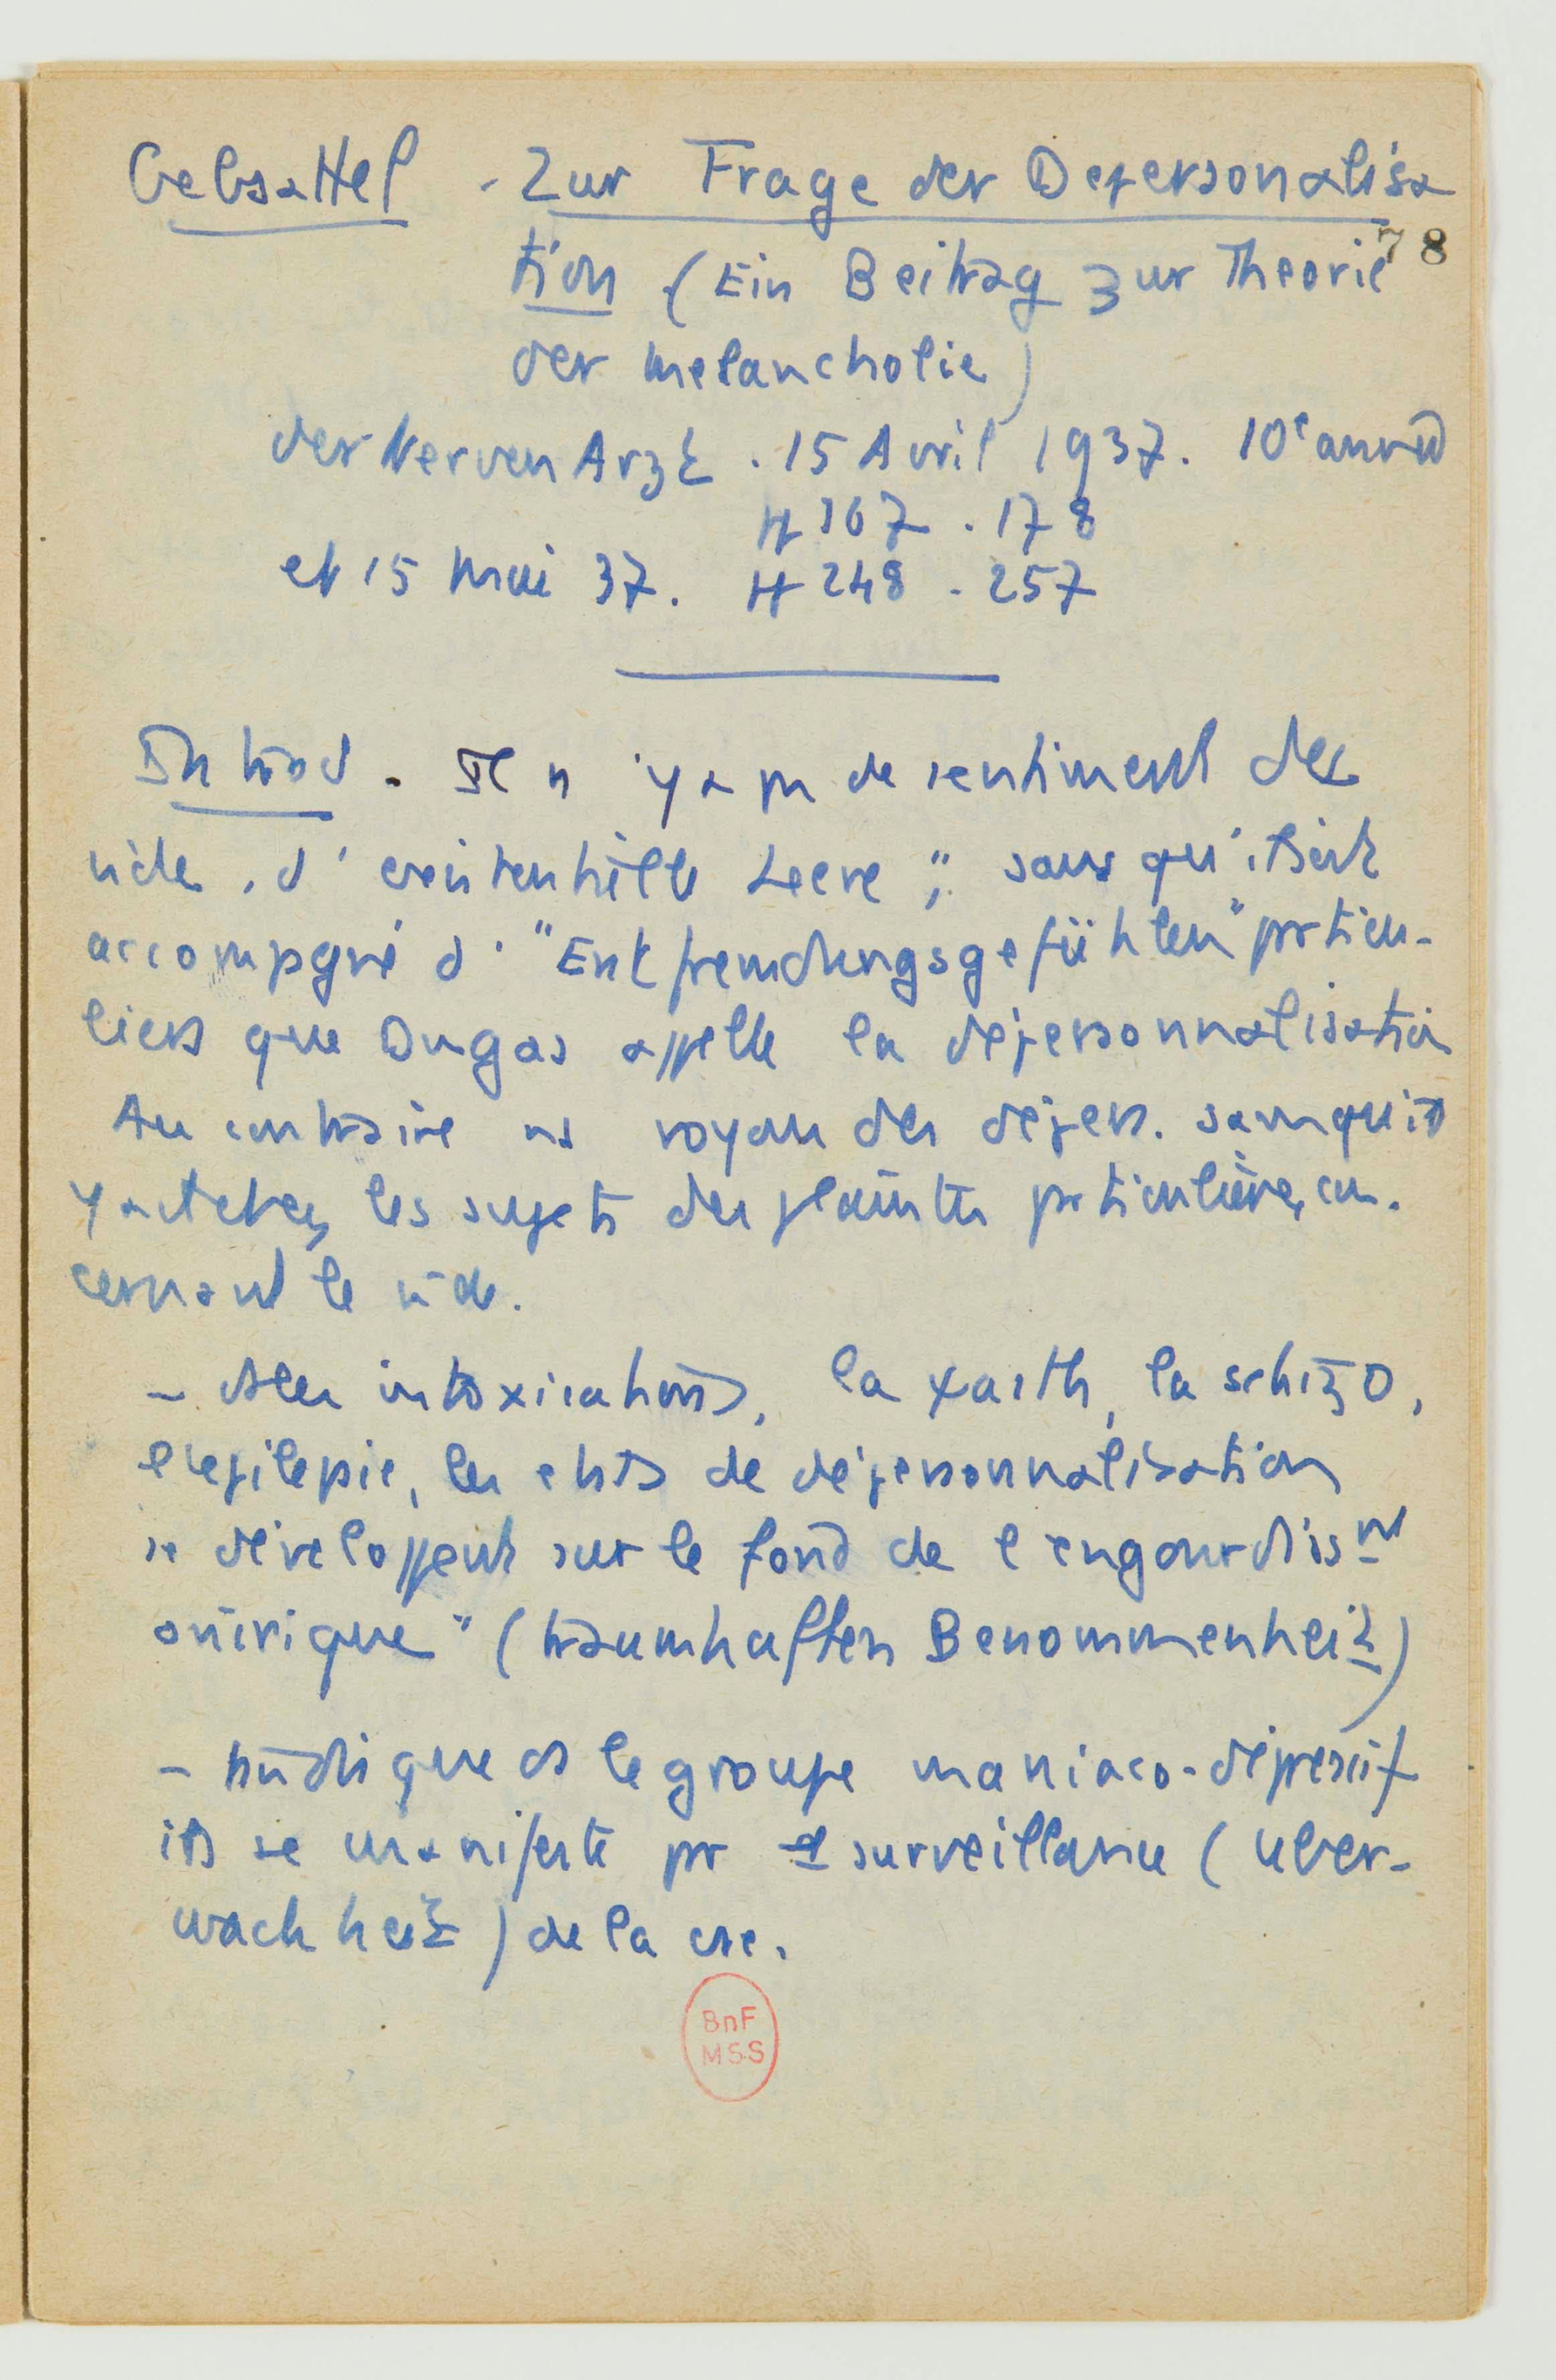 Gebsattel - Zur Frage der Depersonalisa
78
tion (Ein Beitrag zur Theorie
der Melancholie)
der Nerven Arzt . 15 Avril 1937. 10e année
H 167 . 178
et 15 Mai 37. H 248 - 257
Introd. Il n'y a pas de sentiment de
vide, d'existentielle Leere", sans qu'il soit
accompagné d'"Entfremdungsgefühlen" particu-
liers que Dugas appelle la dépersonnalisation
Au contraire ns voyons des dépers. sans qu'il
y ait chez les sujets des plaintes particulières con-
cernant le vide.
- ds les intoxications, la psth, la schizo,
l'epilepsie, les etats de dépersonnalisation
se développent sur le fond de l'engourdismt
onirique" (traumhaften Benommenheit)
- tandis que ds le groupe maniaco-dépressif
ils se manifeste pr surveillance (Uber-
wachheit) de la csc.
BnF
MSS